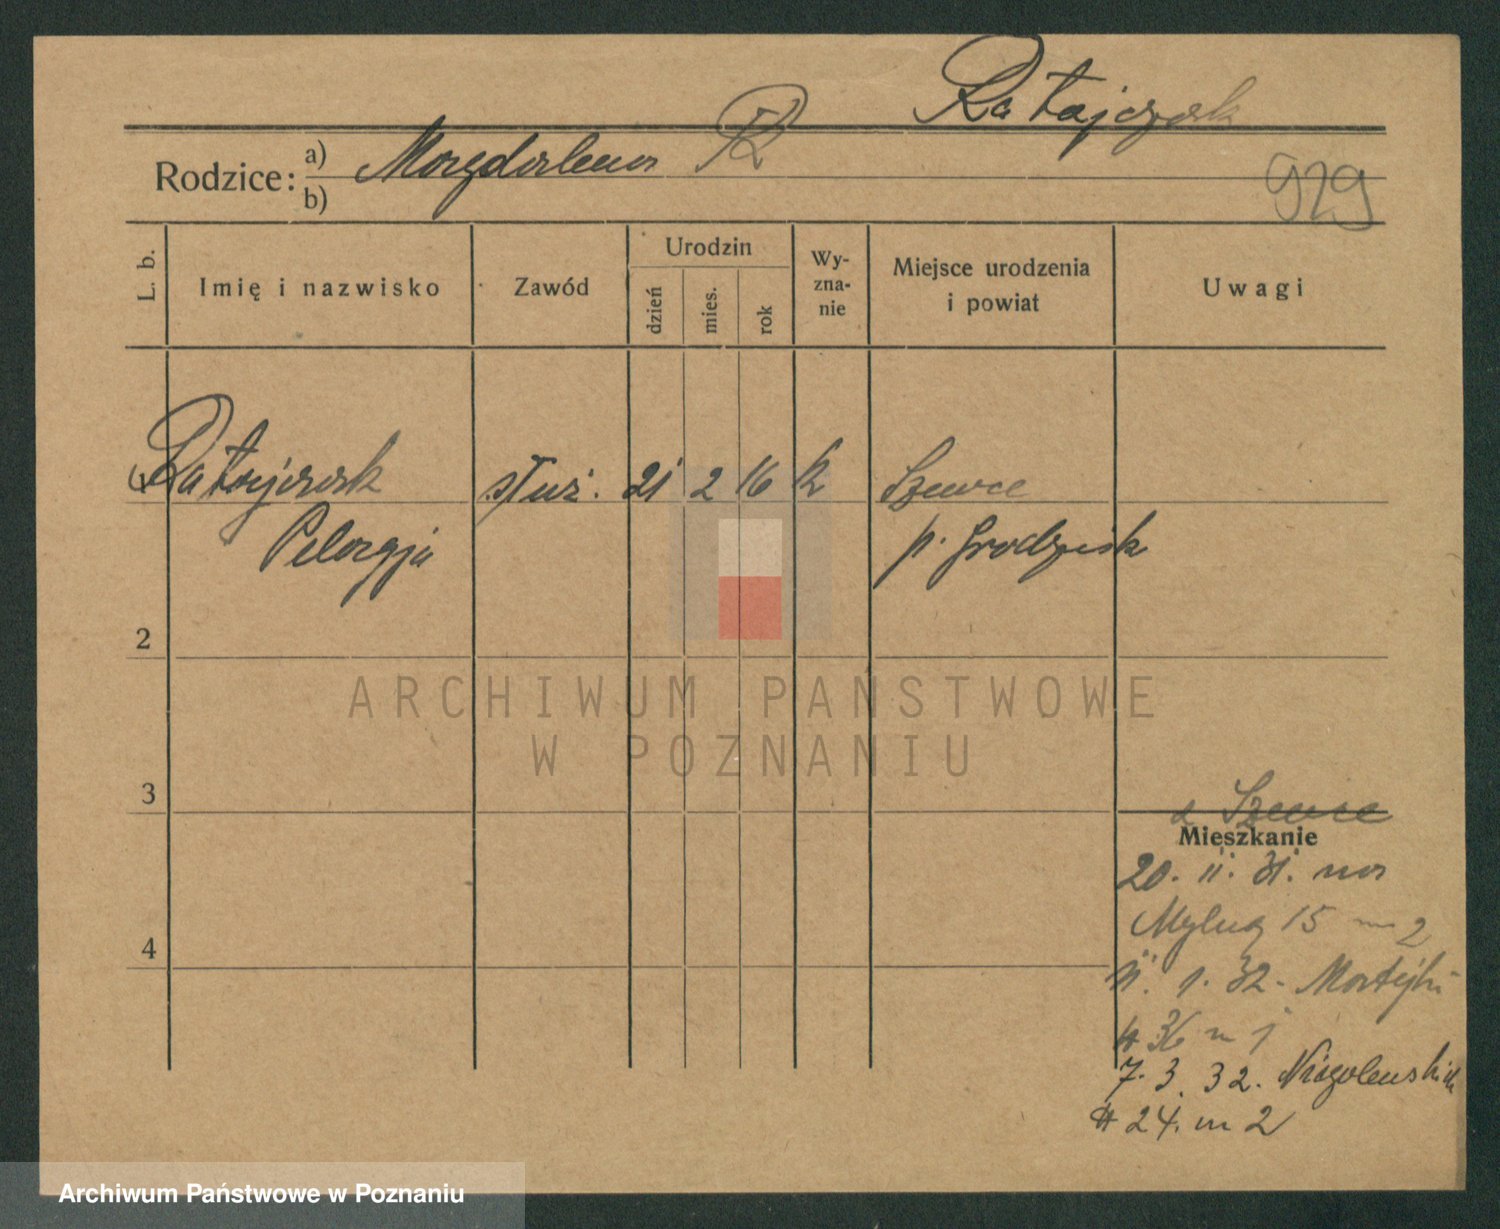 Ratajczak
Rodzice: a) Magdalena R
b)
929
L. b.
Imię i nazwisko
Zawód
Urodzin
dzień
mies.
rok
Wy-
zna-
nie
Miejsce urodzenia
i powiat
Uwagi
Ratajczak służ. 21 2 16 k Szewce
Pelagja p. Grodzisk
2
3
4
z Szewce
Mieszkanie
20. 11. 31. na
Mylną 15 m 2
11. 1. 32.
# 36 m 1
7. 3. 32. Niegolewskich
# 24. m 2
ARCHIWUM PAŃSTWOWE
W POZNANIU
Archiwum Państwowe w Poznaniu